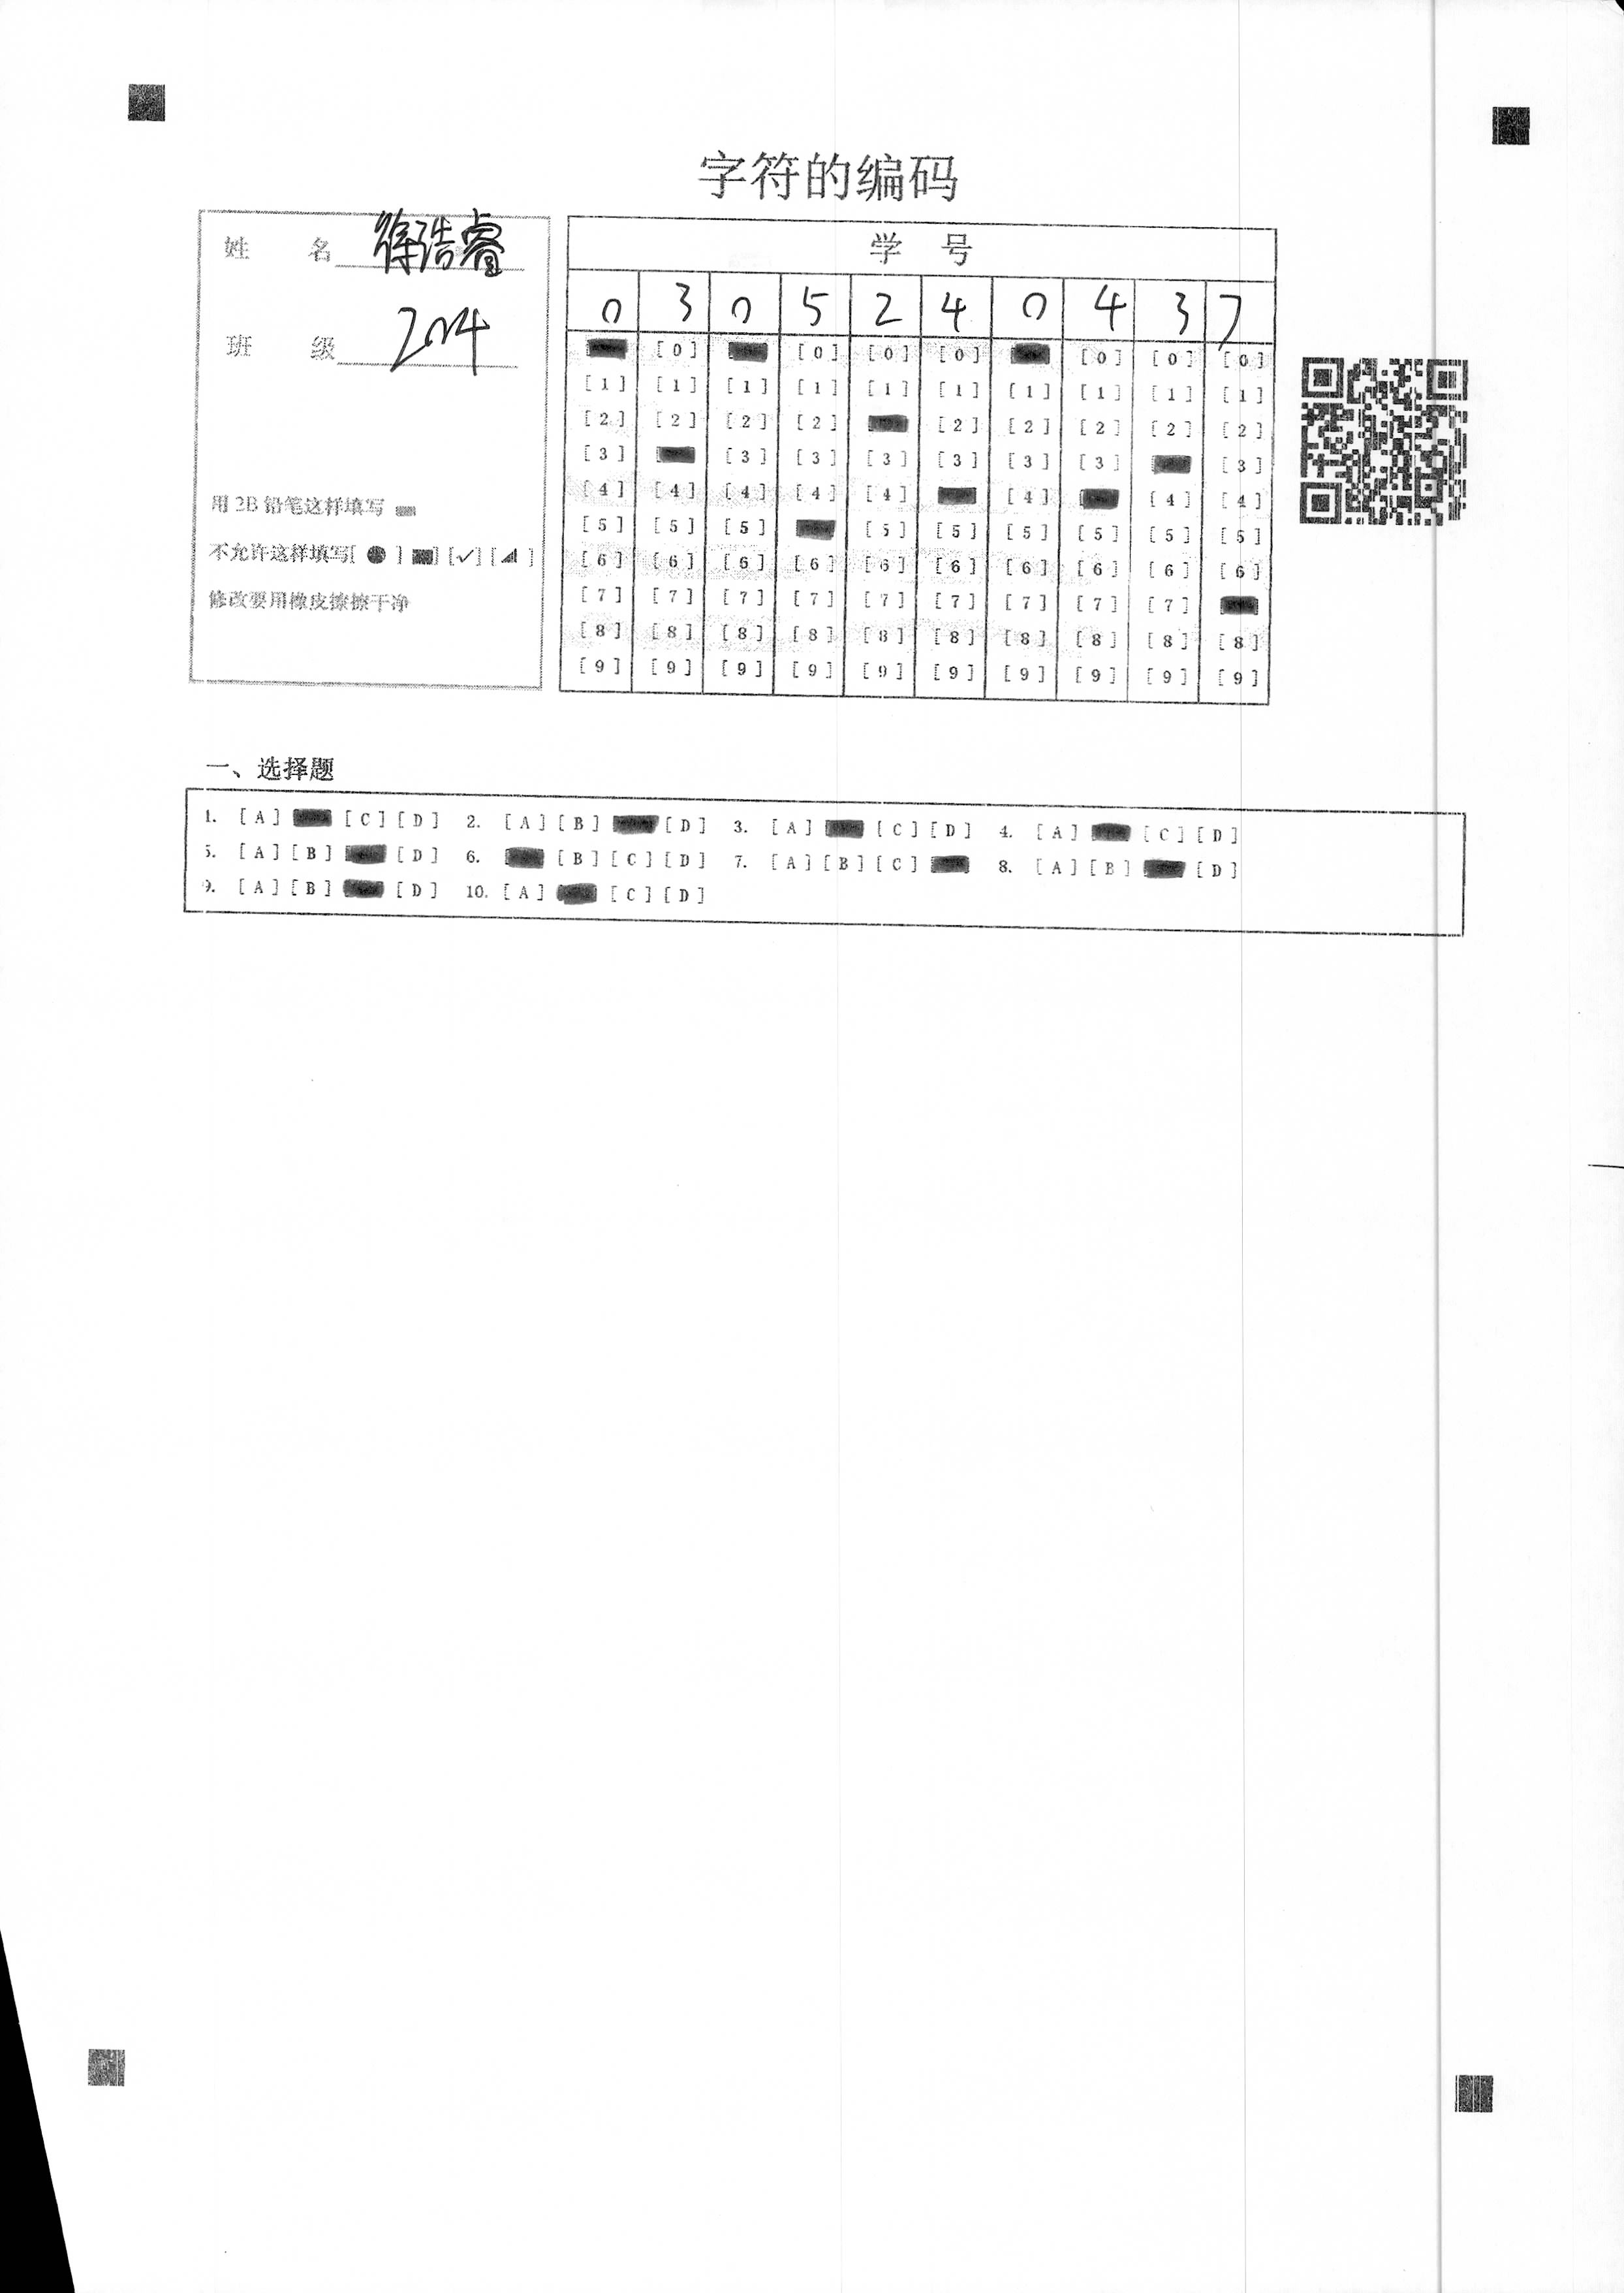 字符的编码
姓 名 徐浩睿
班 级 204
用 2B 铅笔这样填写
不允许这样填写[ ● ] [■] [✓] [◢ ]
修改要用橡皮擦擦干净
学 号
0 3 0 5 2 4 0 4 3 7
[0] [0] [0] [0] [0] [0] [0]
[1] [1] [1] [1] [1] [1] [1] [1] [1] [1]
[2] [2] [2] [2] [2] [2] [2] [2] [2]
[3] [3] [3] [3] [3] [3] [3] [3]
[4] [4] [4] [4] [4] [4] [4] [4]
[5] [5] [5] [5] [5] [5] [5] [5] [5]
[6] [6] [6] [6] [6] [6] [6] [6] [6] [6]
[7] [7] [7] [7] [7] [7] [7] [7] [7]
[8] [8] [8] [8] [8] [8] [8] [8] [8] [8]
[9] [9] [9] [9] [9] [9] [9] [9] [9] [9]
一、选择题
1. [A] [C] [D] 2. [A] [B] [D] 3. [A] [C] [D] 4. [A] [C] [D]
5. [A] [B] [D] 6. [B] [C] [D] 7. [A] [B] [C] 8. [A] [B] [D]
9. [A] [B] [D] 10. [A] [C] [D]